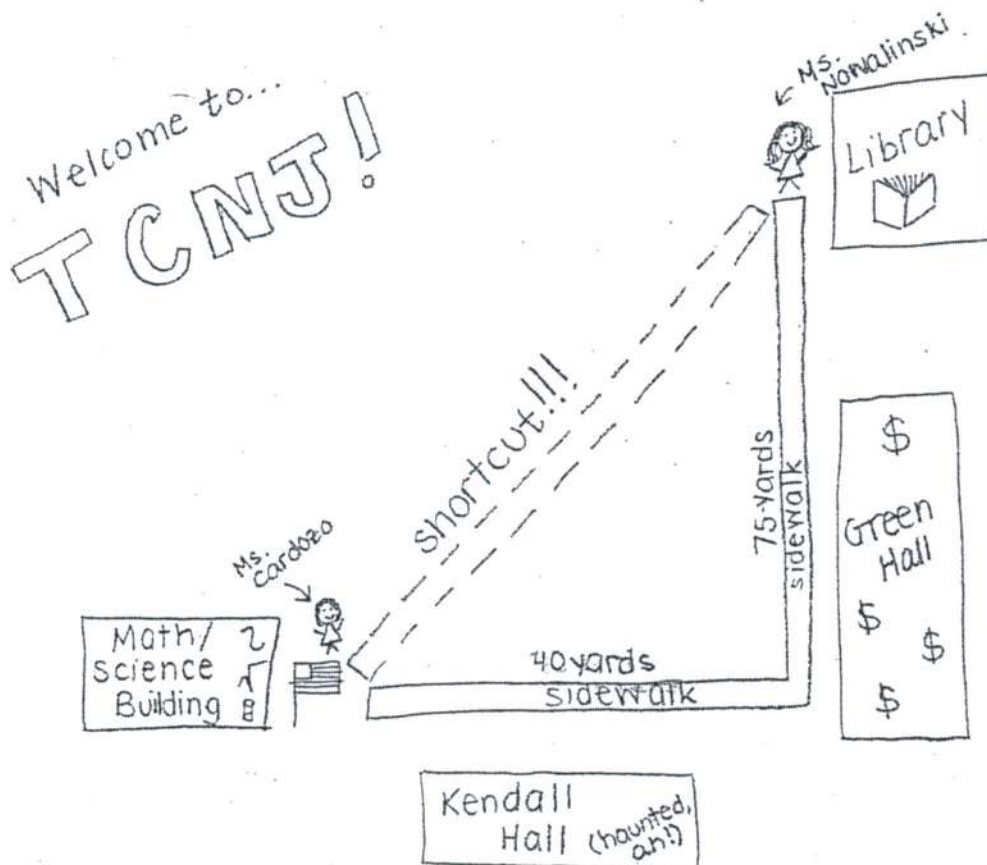 Welcome to...
TCNJ!
Ms.
Nowalinski
Library
Shortcut!!!
75 yards
sidewalk
$
Green
Hall
$
$
$
Ms.
Cardozo
Math/
Science
Building
40 yards
sidewalk
Kendall
Hall (haunted,
ah!)